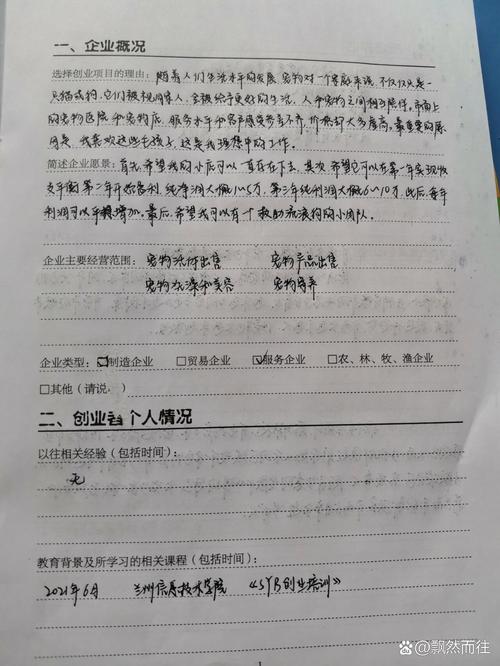 一、企业概况
选择创业项目的理由：随着人们生活水平的发展，宠物对一个家庭来说，不仅仅只是一
只猫或狗，它们被视为家人，会被给予更好的生活，人和宠物之间相互陪伴。市面上
的宠物医院和宠物店，服务水平和客户感受参差不齐，价格却大多虚高。最重要的原
因是，我喜欢这些毛孩子，这是我理想中的工作。
简述企业愿景：首先，希望我的小店可以一直存在下去，其次，希望它可以在第一年实现收
支平衡，第二年开始盈利，纯净润大概1～5万，第三年纯利润大概6～10万，此后，每年
利润可以平稳增加。最后，希望我可以有一个救助流浪狗的小团队。
企业主要经营范围：宠物活体出售 宠物产品出售
宠物洗澡和美容 宠物寄养
企业类型：☑制造企业 □贸易企业 ☑服务企业 □农、林、牧、渔企业
□其他（请说 ）
二、创业者个人情况
以往相关经验（包括时间）：
无
教育背景及所学习的相关课程（包括时间）：
2021年6月 兰州信息技术学院 《SYB创业培训》
1
百家号@飘然而往